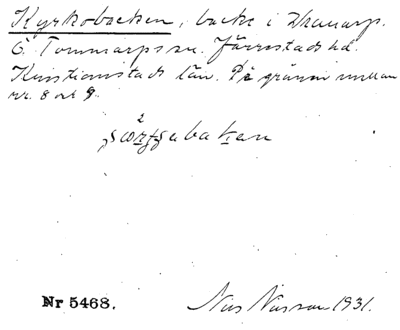 Kyrkobacken, backe i Skanarp.
Ö. Tommarps sn. Järrestads hd.
Kristianstads län. På gränsen mellan
nr. 8 och 9.
Nr 5468.
Nils Nilsson 1931.